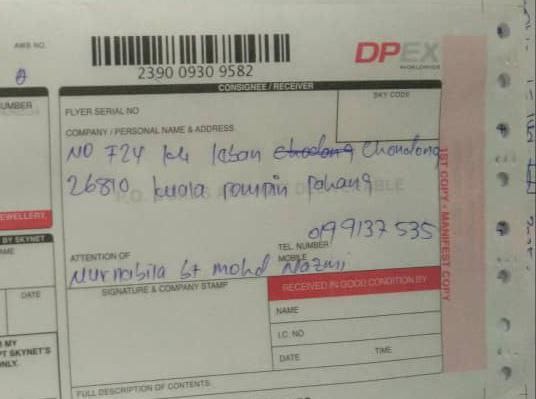 AWB NO.
2390 0930 9582
DPEX
WORLDWIDE
CONSIGNEE / RECEIVER
FLYER SERIAL NO
SKY CODE
COMPANY / PERSONAL NAME & ADDRESS
NO F24
Chondong
26810 kuala rompin Pahang
P.O. BLE
0199137 535
ATTENTION OF
TEL. NUMBER
MOBILE
Nurnabila bt mohd Nazmi
SIGNATURE & COMPANY STAMP
RECEIVED IN GOOD CONDITION BY
NAME
I.C. NO
DATE
TIME
FULL DESCRIPTION OF CONTENTS
1ST COPY - MANIFEST COPY
UMBER
EWELLERY,
BY SKYNET
AME
DATE
MY
PT SKYNET'S
ONLY.